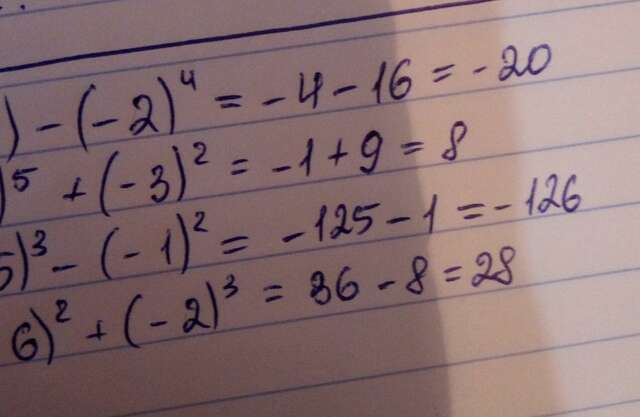 ) - (-2)⁴ = -4 - 16 = -20
)⁵ + (-3)² = -1 + 9 = 8
5)³ - (-1)² = -125 - 1 = -126
6)² + (-2)³ = 36 - 8 = 28